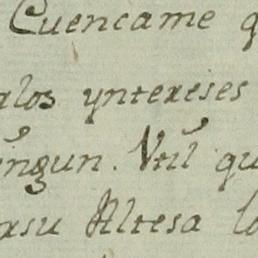 Cuencame q
alos yntereses
engun. Vtil qu
asu Altesa lo